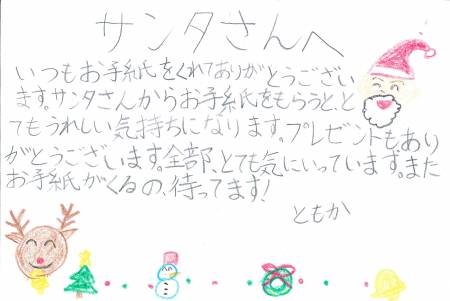 サンタさんへ
いつもお手紙をくれてありがとうござい
ます。サンタさんからお手紙をもらうと、と
てもうれしい気持ちになります。プレゼントも、あり
がとうございます。全部、とても気にいっています。また
お手紙がくるの、待ってます!
ともか